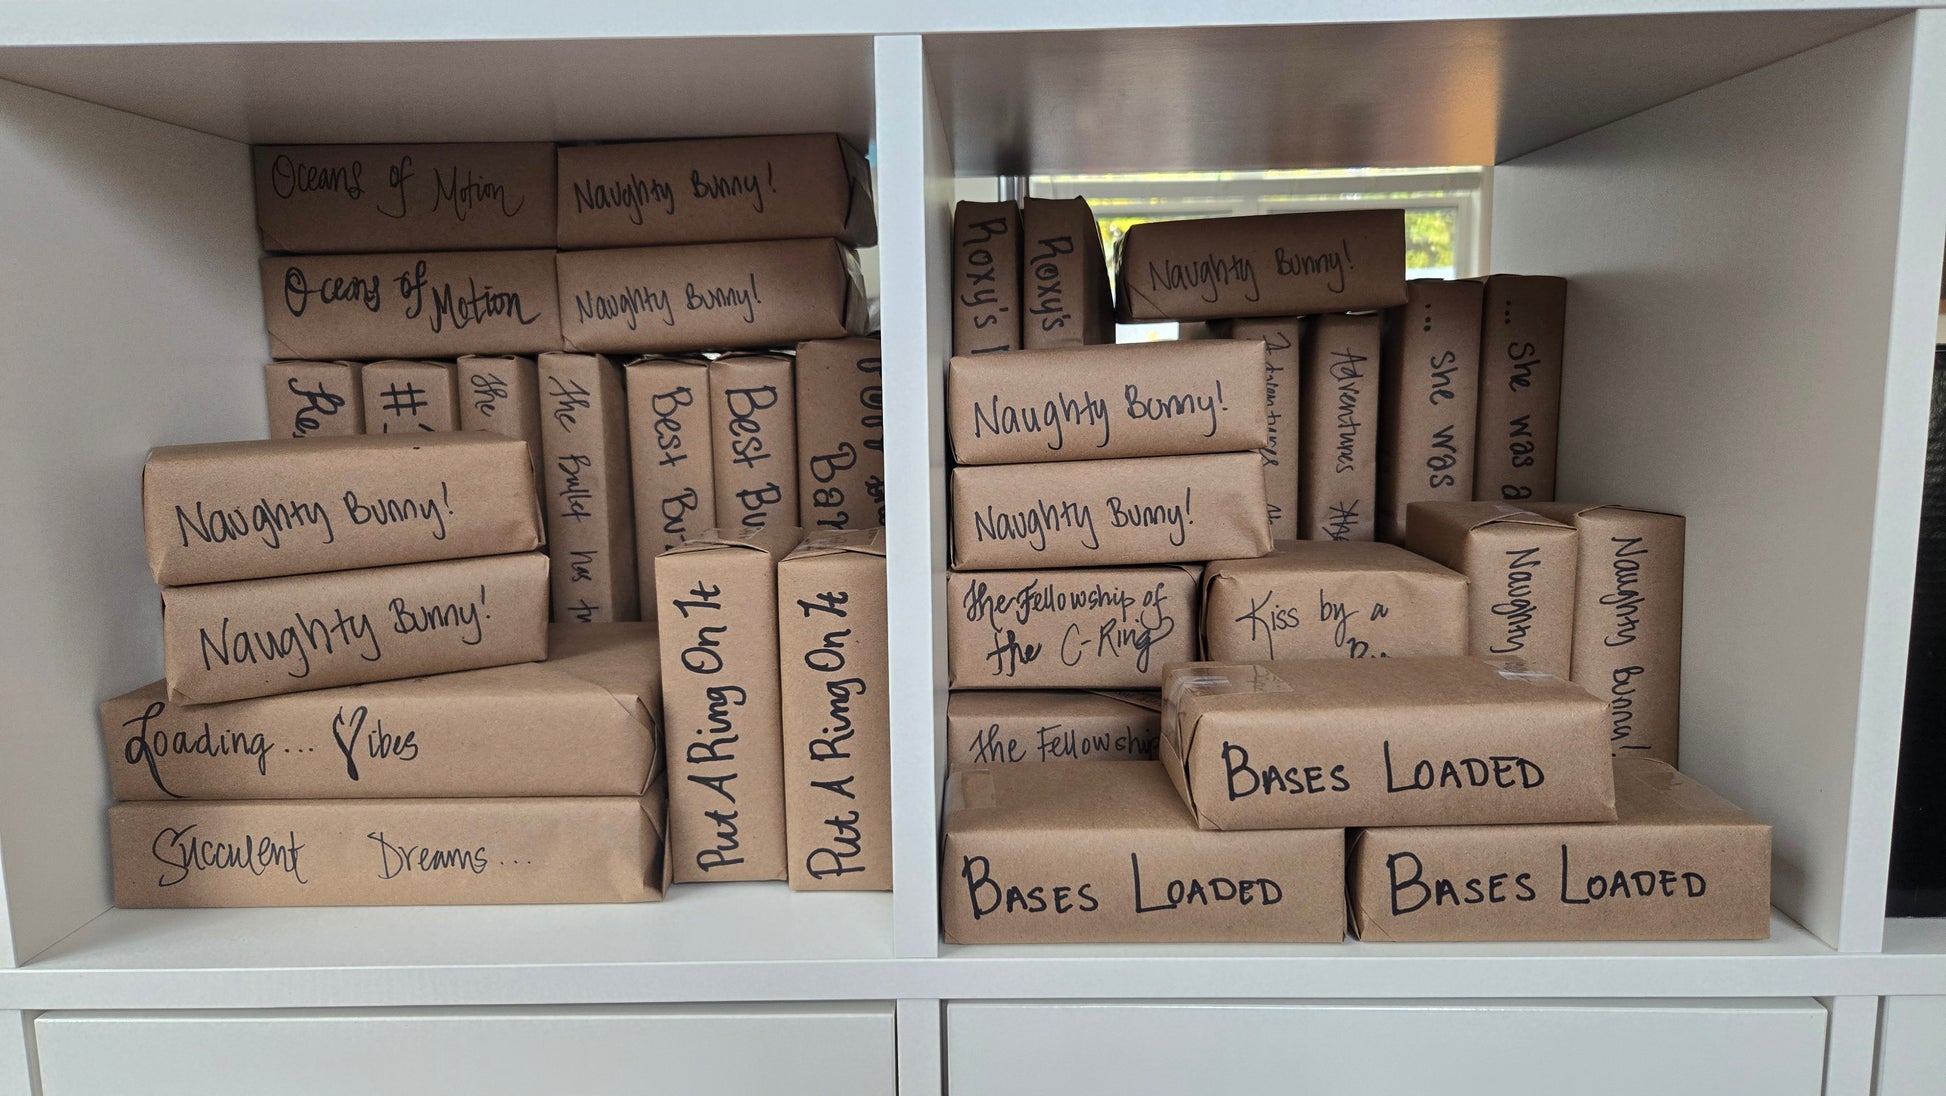 Oceans of Motion
Naughty Bunny!
Oceans of Motion
Naughty Bunny!
#
The
The Bullet has
Best
Best
Naughty Bunny!
Naughty Bunny!
Loading... Vibes
Succulent Dreams...
Put A Ring On It
Put A Ring On It
Roxy's
Roxy's
Naughty Bunny!
Adventures
... She was
... She was a
Naughty Bunny!
Naughty Bunny!
The Fellowship of
the C-Ring
Kiss by a
Naughty
Naughty Bunny!
The Fellowship
BASES LOADED
BASES LOADED
BASES LOADED